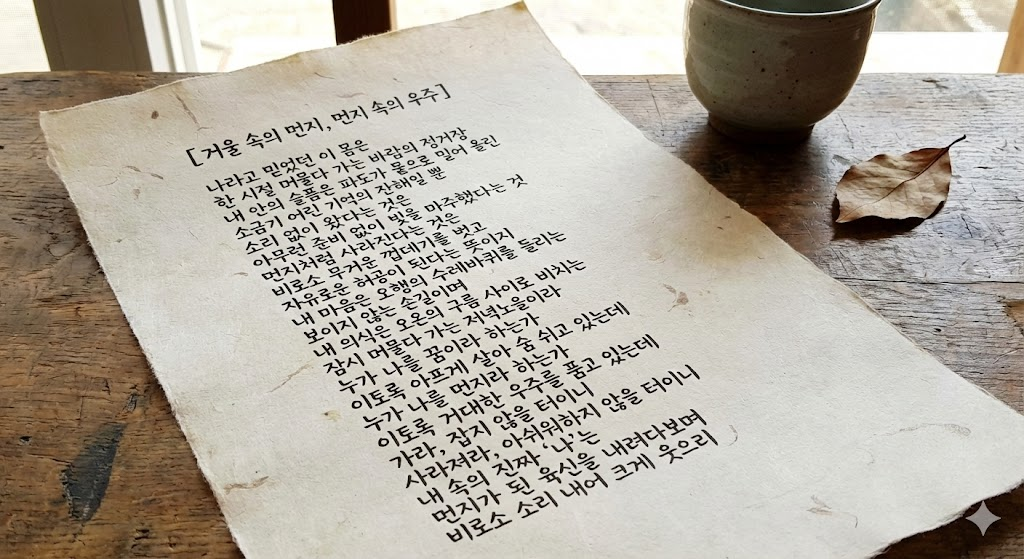 [거울 속의 먼지, 먼지 속의 우주]
나라고 믿었던 이 몸은
한 시절 머물다 가는 바람의 정거장
내 안의 슬픔은 파도가 뭍으로 밀어 올린
소금기 어린 기억의 잔해일 뿐
소리 없이 왔다는 것은
아무런 준비 없이 빛을 마주했다는 것
먼지처럼 사라진다는 것은
비로소 무거운 껍데기를 벗고
자유로운 허공이 된다는 뜻이지
내 마음은 오행의 수레바퀴를 돌리는
보이지 않는 손길이며
내 의식은 오온의 구름 사이로 비치는
잠시 머물다 가는 저녁노을이라
누가 나를 꿈이라 하는가
이토록 아프게 살아 숨 쉬고 있는데
누가 나를 먼지라 하는가
이토록 거대한 우주를 품고 있는데
가라, 잡지 않을 터이니
사라져라, 아쉬워하지 않을 터이니
내 속의 진짜 '나'는
먼지가 된 육신을 내려다보며
비로소 소리 내어 크게 웃으리